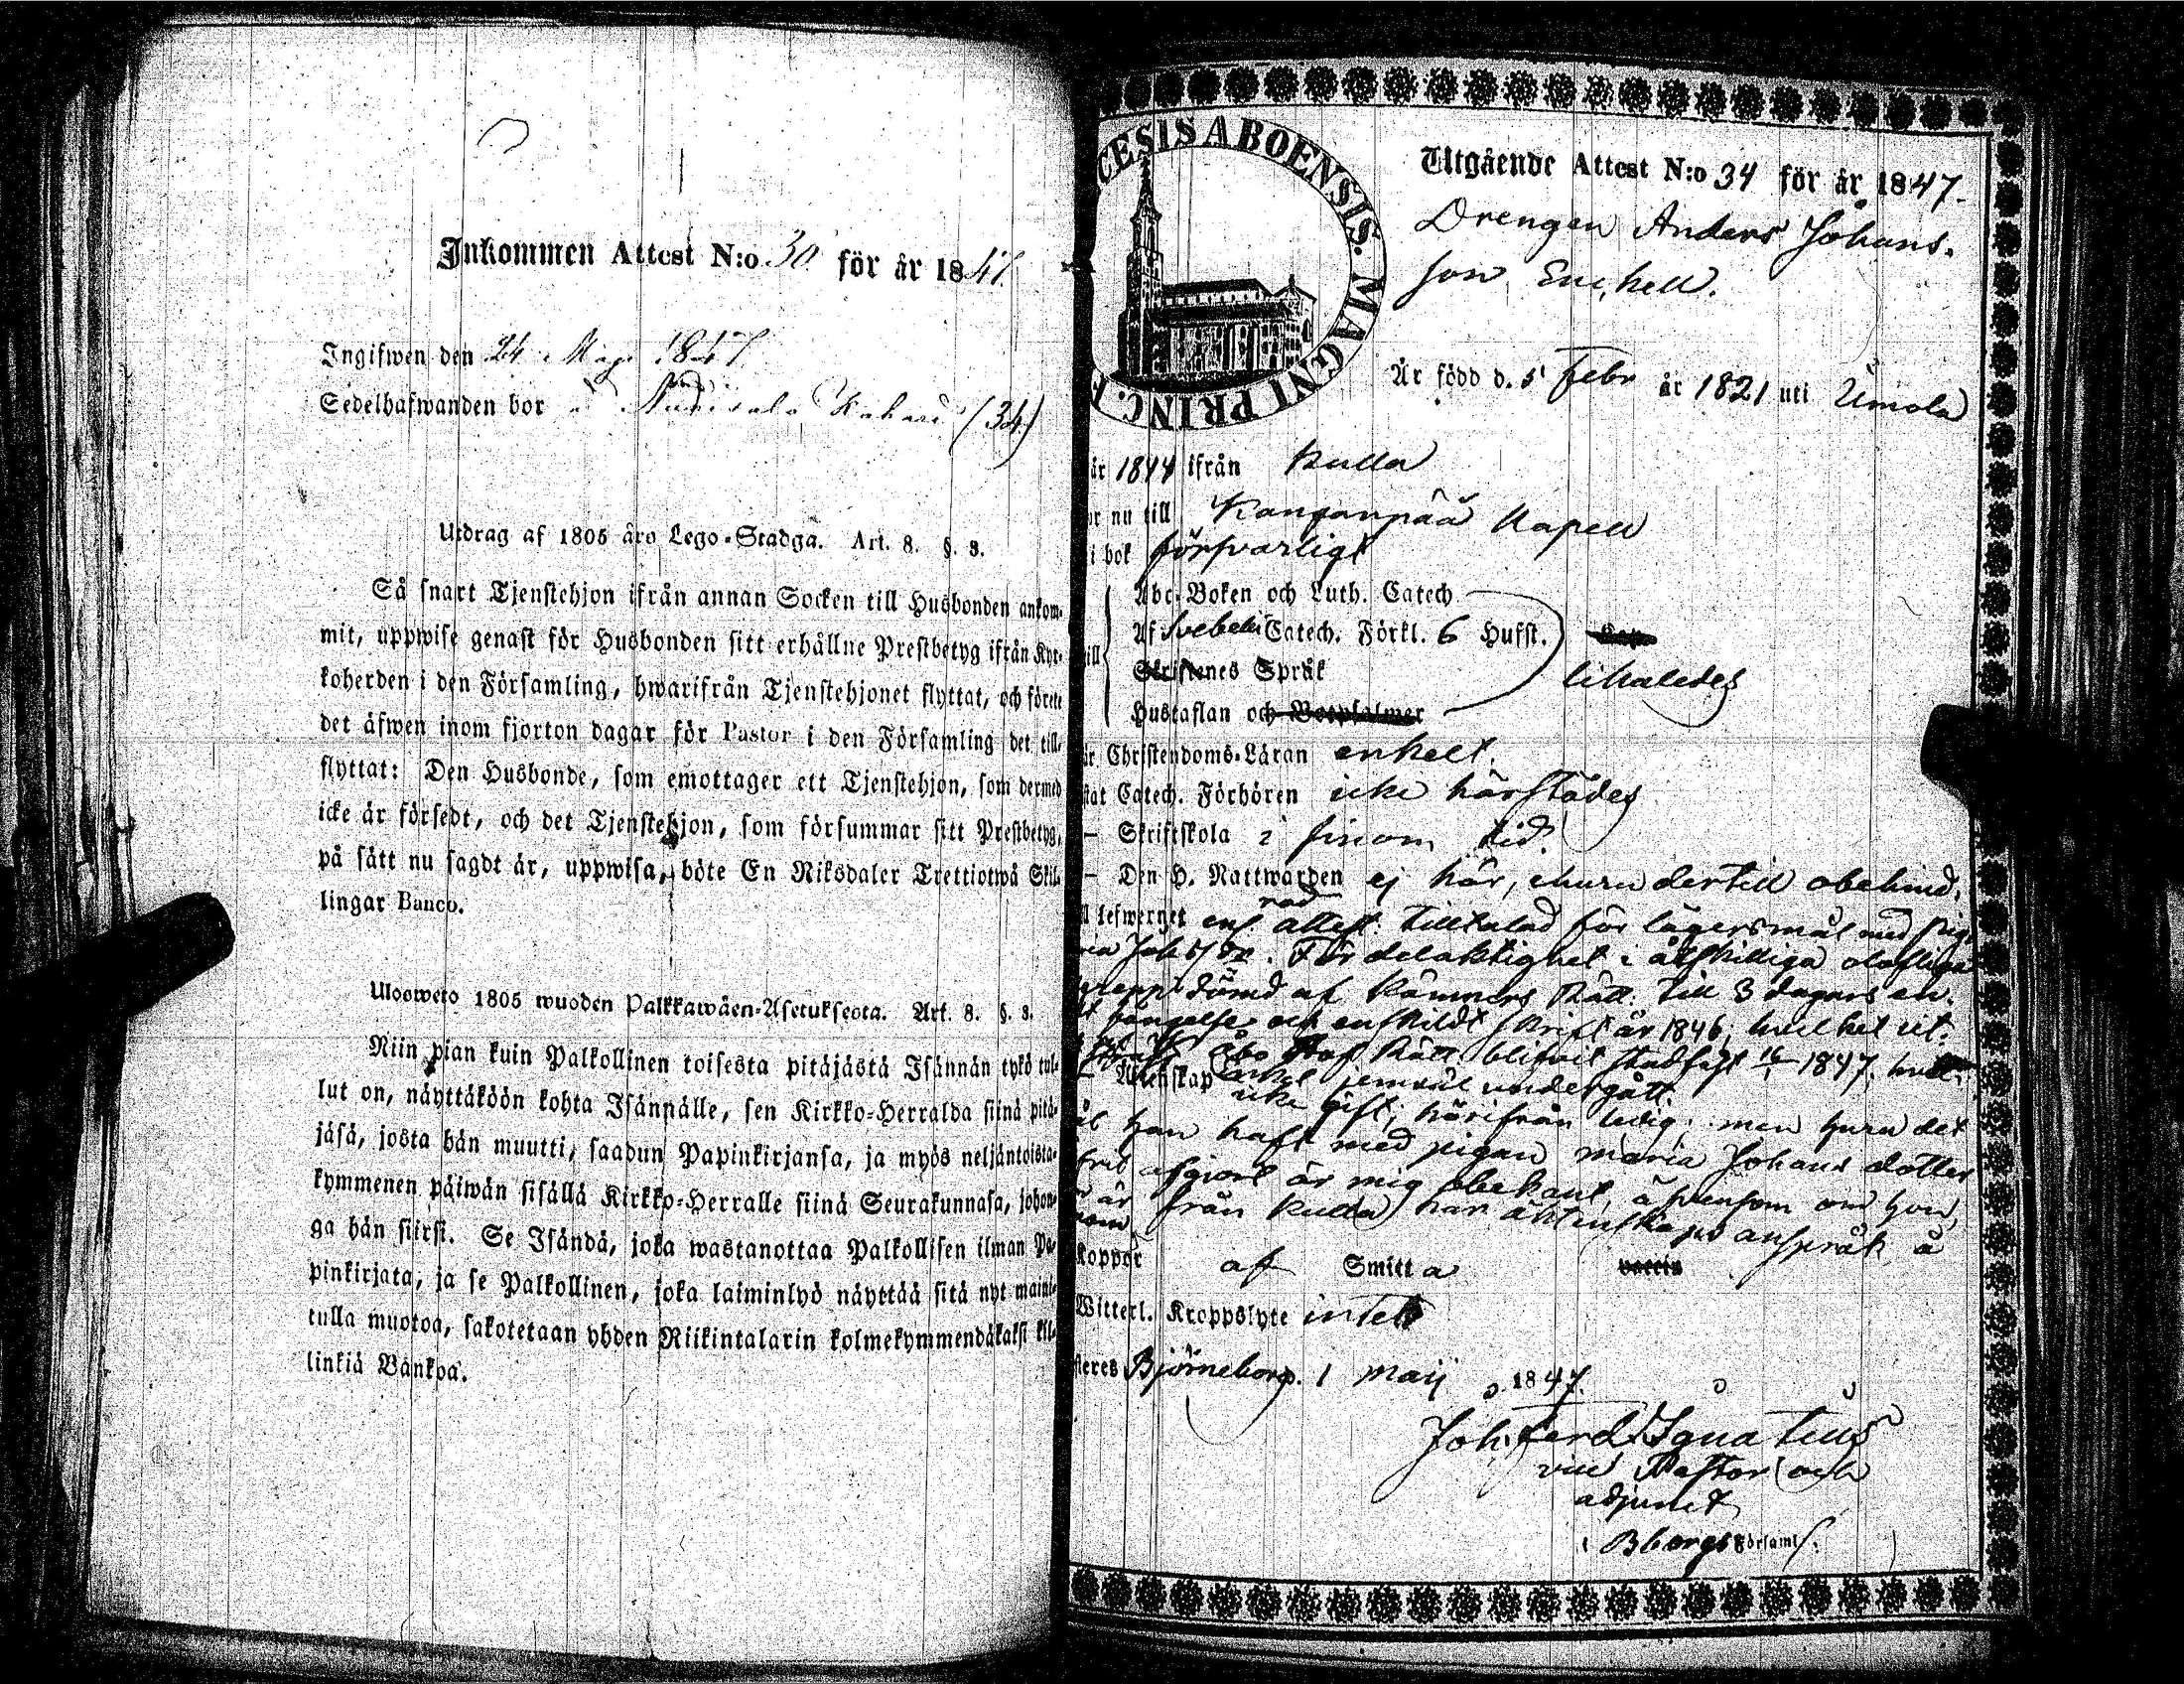 Inkommen Attest N:o 30 för år 1847.
Ingifwen den 24 Maji 1847
Sedelhafwanden bor å (34)
Utdrag af 1805 års Lego-Stadga. Art. 8. §. 3.
Så snart Tjenstehjon ifrån annan Socken till Husbonden ankom-
mit, uppwise genast för Husbonden sitt erhållne Prestbetyg ifrån Kyr-
koherden i den Församling, hwarifrån Tjenstehjonet flyttat, och förete
det äfwen inom fjorton dagar för Pastor i den Församling det till-
flyttat: Den Husbonde, som emottager ett Tjenstehjon, som dermed
icke är försedt, och det Tjenstehjon, som försummar sitt Prestbetyg,
på sätt nu sagdt är, uppwisa, böte En Riksdaler Trettiotwå Skil-
lingar Banco.
Ulosweto 1805 wuoden Palkkawäen-Asetuksesta. Art. 8. §. 3.
Niin pian kuin Palkollinen toisesta pitäjästä Isännän tykö tul-
lut on, näyttäköön kohta Isännälle, sen Kirkko-Herralda siinä pitä-
jäsä, josta hän muutti, saadun Papinkirjansa, ja myös neljäntoista-
kymmenen päiwän sisällä Kirkko-Herralle siinä Seurakunnasa, johon-
ga hän siirsi. Se Isändä, joka wastanottaa Palkollisen ilman Pa-
pinkirjata, ja se Palkollinen, joka laiminlyö näyttää sitä nyt maini-
tulla muotoa, sakotetaan yhden Riikintalarin kolmekymmendäkaksi kil-
linkiä Bankoa.
CESIS ABOENSIS. MAGNI PRINC. F
Utgående Attest N:o 34 för år 1847.
Drengen Anders Johans-
son Enchell.
Är född d. 5 Febr år 1821 uti Umola
år 1844 ifrån Kulla
nu till Kanganpää Kapell
i bok försvarligt
Abc-Boken och Luth. Catech.
Af Svebelii Catech. Förkl. 6 Hufst.
Skriftenes Språk
likaledes
Hustaflan och Botpsalmer
Christendoms-Läran enkelt.
Catech. Förhören icke härstädes
- Skriftskola i sinom tid.
- Den H. Nattwarden ej här, ehuru dertill obehind-
rad
lefwernet enl. attest. tilltalad för lägersmål med pig.
ria Johsdr. För delaktighet i åtskilliga olofliga
dömd af Kämners Rätt till 3 dagars en-
fängelse och enskildt skrift år 1846, hvilket ut-
Åbo Hof Rätt blifvit stadfäst 1847, hvil-
ket jemväl undergått.
- Äktenskap icke gift; härifrån ledig; men huru det
han haft med pigan Maria Johans dotter
afgjort är mig obekant, äfvensom om hon,
är från Kulla) har äktenskaps anspråk å
honom
Koppor af Smitta vaccin
Witterl. Kroppslyte intet
Björneborg. 1 Maij 1847.
Joh. Ferd. Ignatius
vice Pastor och
adjunct
i Bborgs Församl.